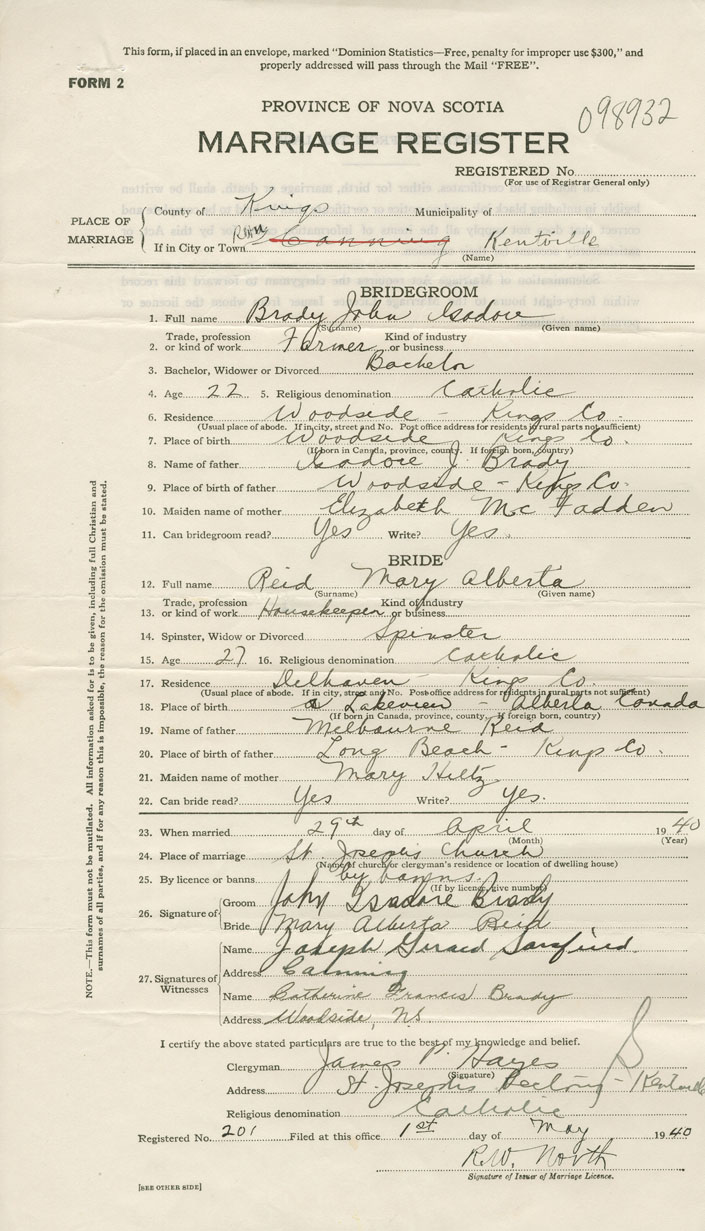 This form, if placed in an envelope, marked "Dominion Statistics—Free, penalty for improper use $300," and
properly addressed will pass through the Mail "FREE".
FORM 2
PROVINCE OF NOVA SCOTIA
098932
MARRIAGE REGISTER
REGISTERED No.
(For use of Registrar General only)
PLACE OF MARRIAGE
County of Kings Municipality of
If in City or Town Canning Kentville
(Name)
BRIDEGROOM
1. Full name Brady John Isadore
(Surname) (Given name)
2. Trade, profession or kind of work Farmer Kind of industry or business
3. Bachelor, Widower or Divorced Bachelor
4. Age 22 5. Religious denomination Catholic
6. Residence Woodside - Kings Co.
(Usual place of abode. If in city, street and No. Post office address for residents in rural parts not sufficient)
7. Place of birth Woodside Kings Co.
(If born in Canada, province, county. If foreign born, country)
8. Name of father Isadore J. Brady
9. Place of birth of father Woodside - Kings Co.
10. Maiden name of mother Elizabeth McFadden
11. Can bridegroom read? Yes Write? Yes.
BRIDE
12. Full name Reid Mary Alberta
(Surname) (Given name)
13. Trade, profession or kind of work Housekeeper Kind of industry or business
14. Spinster, Widow or Divorced Spinster
15. Age 27 16. Religious denomination Catholic
17. Residence Delhaven - Kings Co.
(Usual place of abode. If in city, street and No. Post office address for residents in rural parts not sufficient)
18. Place of birth Lakeview - Alberta Canada
(If born in Canada, province, county, If foreign born, country)
19. Name of father Melbourne Reid
20. Place of birth of father Long Beach - Kings Co.
21. Maiden name of mother Mary Hiltz
22. Can bride read? Yes Write? Yes.
23. When married 29th day of April 1940
(Month) (Year)
24. Place of marriage St. Joseph's Church
(Name of church or clergyman's residence or location of dwelling house)
25. By licence or banns by banns.
(If by licence, give number)
26. Signature of Groom John Isadore Brady
Bride Mary Alberta Reid
27. Signatures of Witnesses
Name Joseph Gerard
Address Canning
Name Catherine Francis Brady
Address Woodside, N.S.
I certify the above stated particulars are true to the best of my knowledge and belief.
Clergyman James P. Hayes
(Signature)
Address St. Joseph's - Kentville
Religious denomination Catholic
Registered No. 201 Filed at this office 1st day of May 1940
R.W. North
Signature of Issuer of Marriage Licence.
[SEE OTHER SIDE]
NOTE.—This form must not be mutilated. All information asked for is to be given, including full Christian and
surnames of all parties, and if for any reason this is impossible, the reason for the omission must be stated.